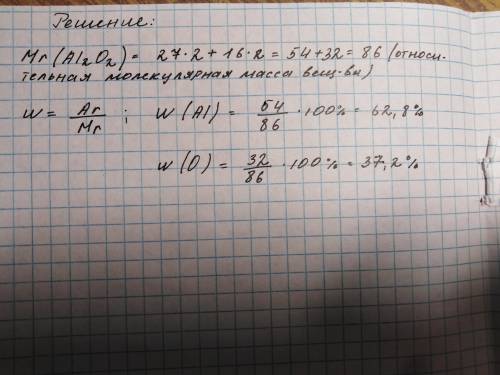 Решение:
Mr(Al₂O₂) = 27·2 + 16·2 = 54+32 = 86 (относи-
тельная молекулярная масса вещ-ва)
w = Ar/Mr ; w(Al) = 54/86 · 100% = 62,8%
w(O) = 32/86 · 100% = 37,2%